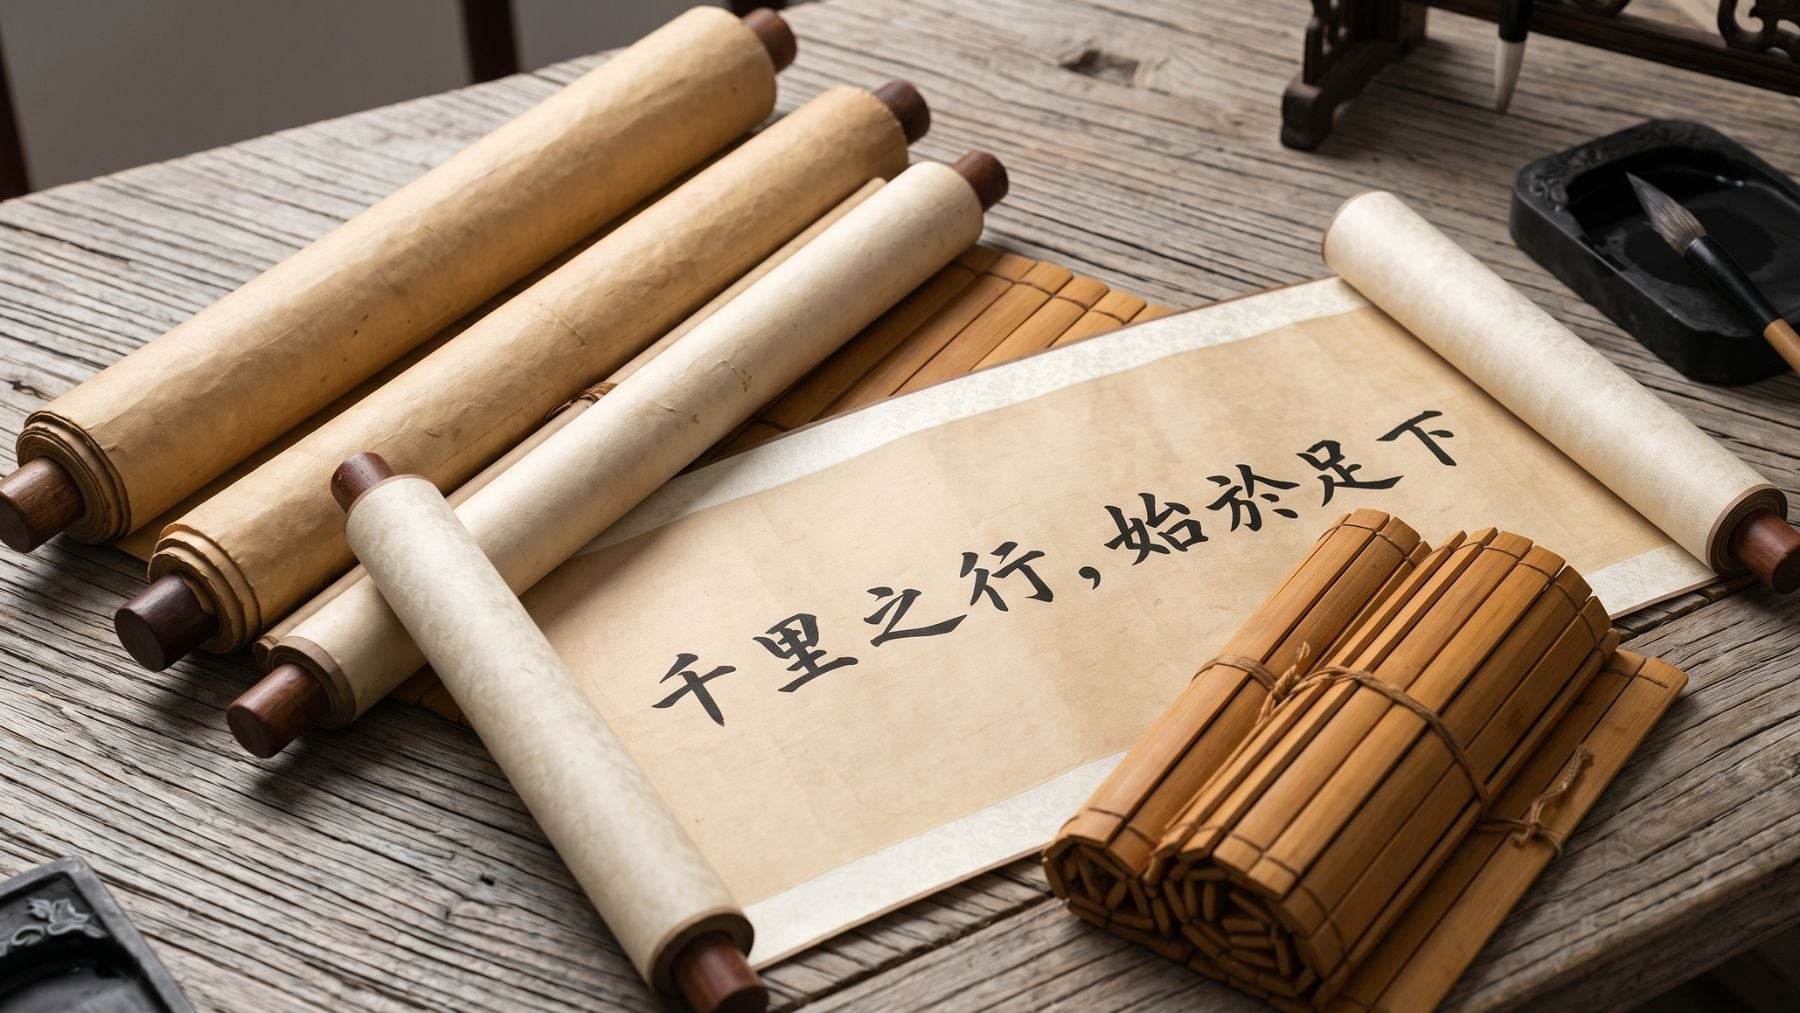 千里之行,始於足下